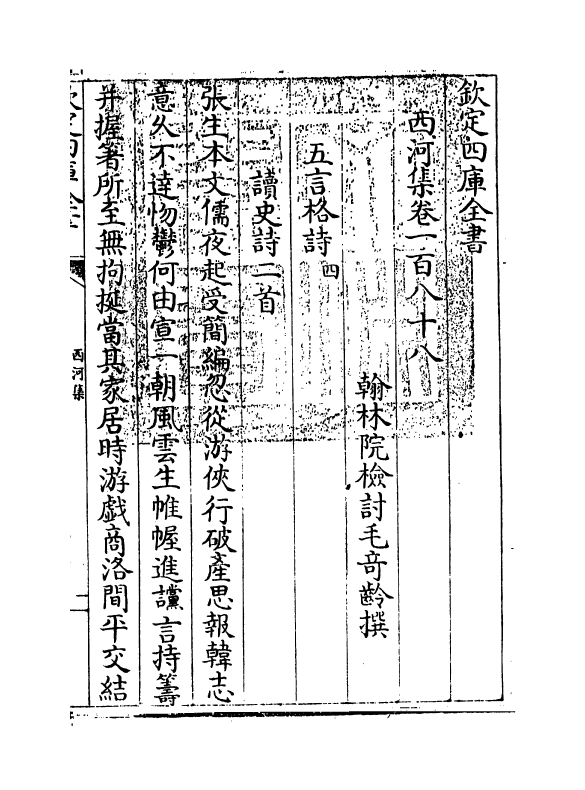 欽定四庫全書
西河集卷一百八十八
翰林院檢討毛奇齡撰
五言格詩四
讀史詩二首
張生本文儒夜起受簡編忽從游俠行破產思報韓志
意久不達怫鬱何由宣一朝風雲生帷幄進讜言持籌
并握箸所至無拘挻當其家居時游戲商洛間平交結
西河集